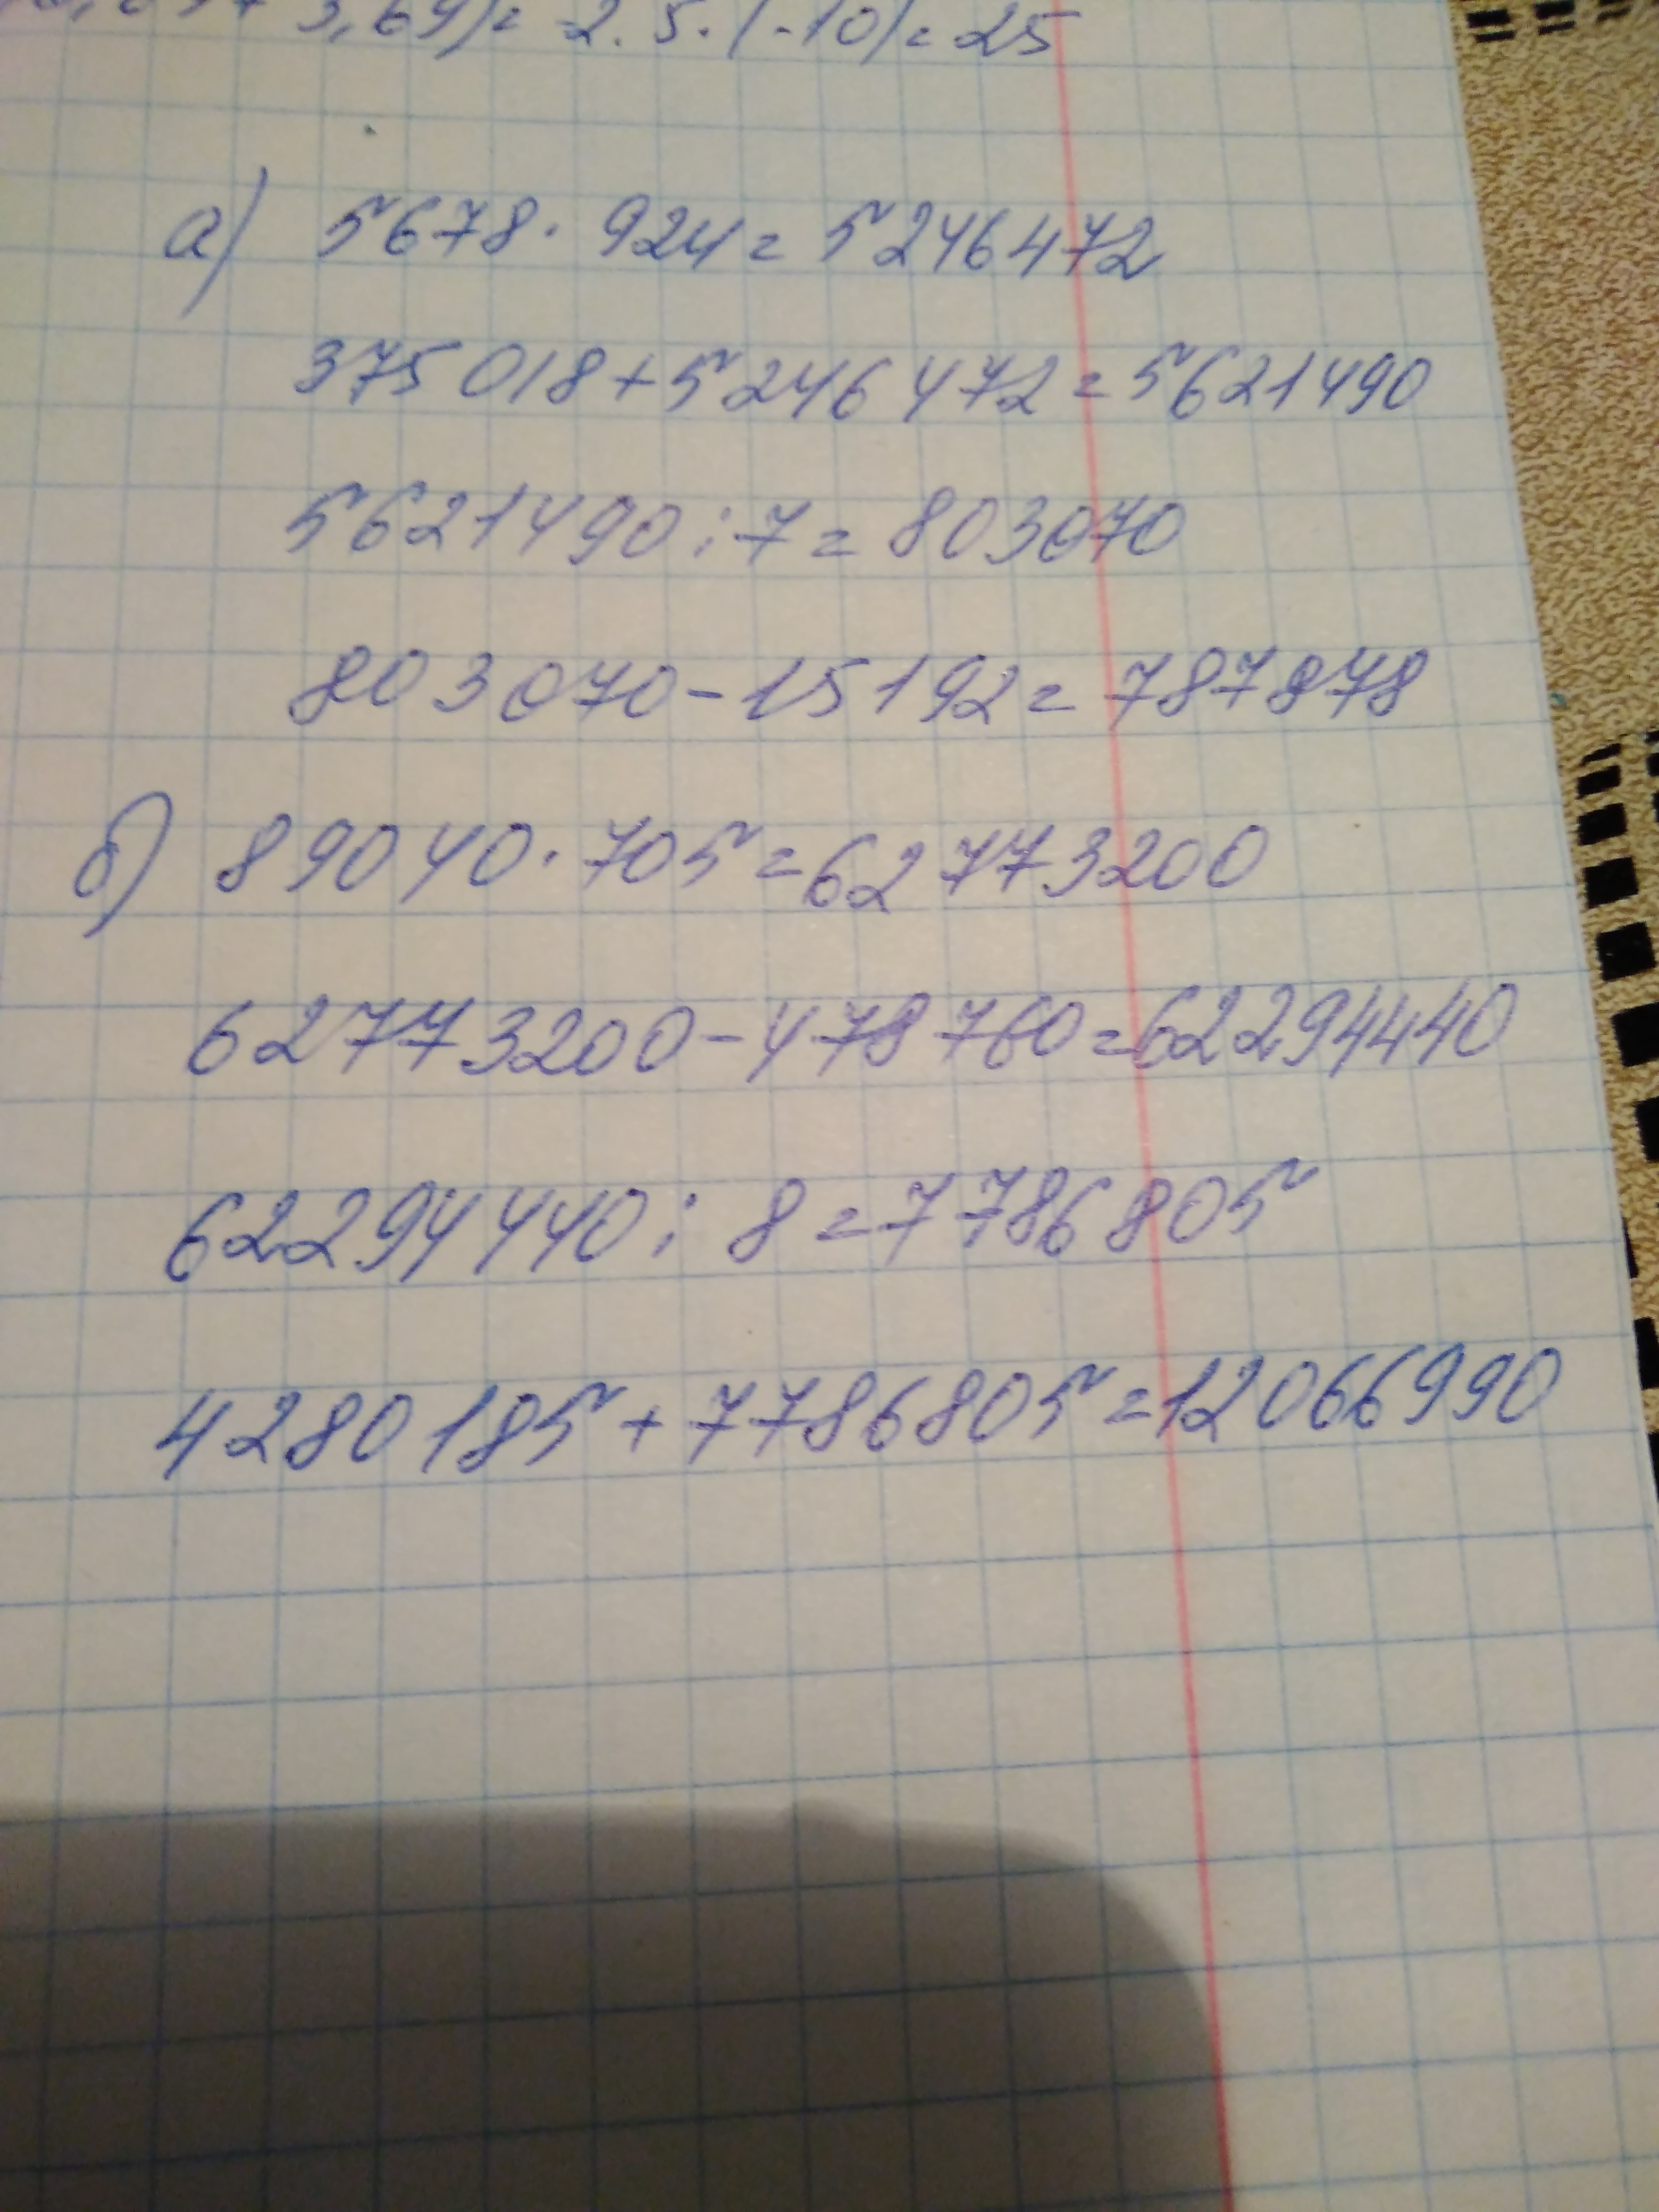 3,69)= -2.5·(-10)=25
а) 5678·924=5246472
375018+5246472=5621490
5621490:7=803070
803070-15192=787878
б) 89040·705=62773200
62773200-478760=62294440
62294440:8=7786805
4280185+7786805=12066990